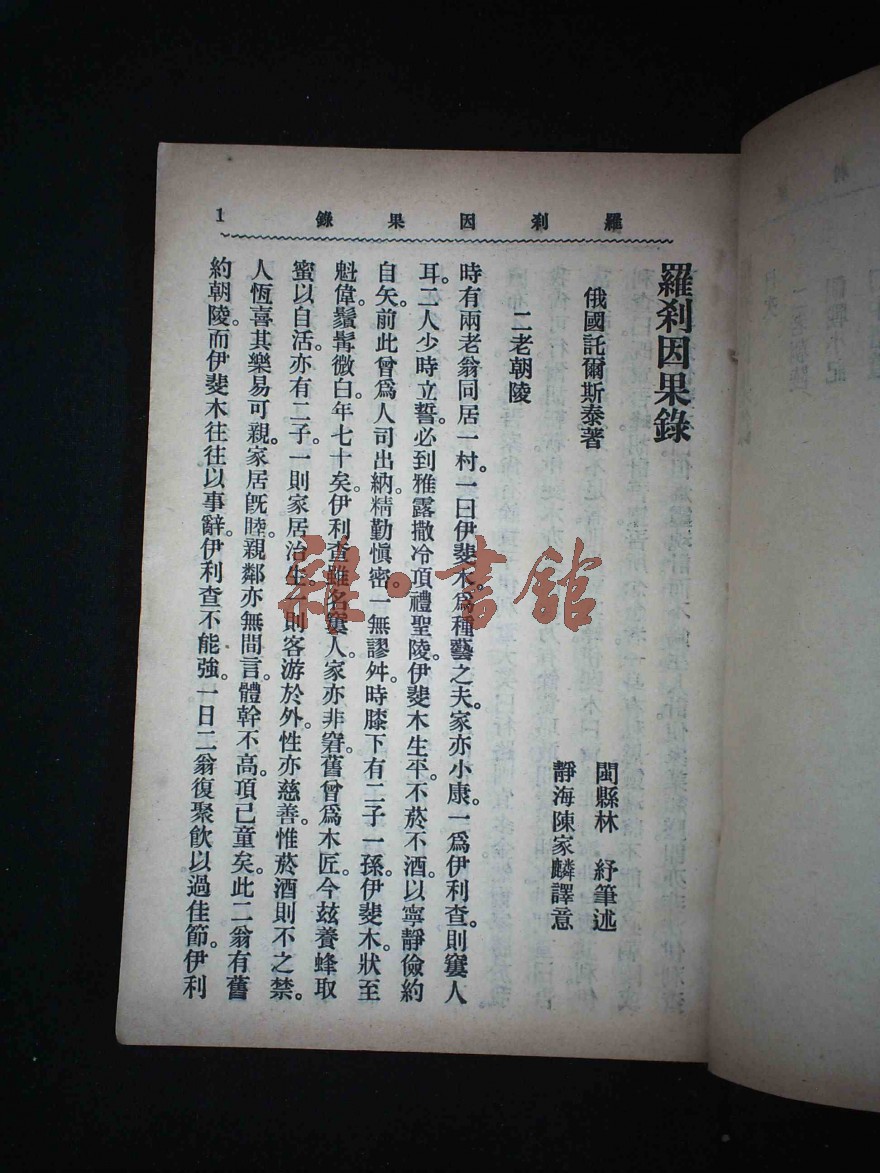 羅刹因果錄
1
羅刹因果錄
俄國託爾斯泰著
閩縣林　紓筆述
靜海陳家麟譯意
二老朝陵
時有兩老翁同居一村。一曰伊斐木。爲種藝之夫。家亦小康。一爲伊利查。則窶人
耳。二人少時立誓。必到雅露撒冷頂禮聖陵。伊斐木生平不菸不酒。以寧靜儉約
自矢。前此曾爲人司出納。精勤愼密。一無謬舛。時膝下有二子一孫。伊斐木狀至
魁偉。鬚髯微白。年七十矣。伊利查雖名窶人。家亦非窘。舊曾爲木匠。今茲養蜂取
蜜以自活。亦有二子。一則家居治生。一則客游於外。性亦慈善。惟菸酒則不之禁。
人恆喜其樂易可親。家居旣睦。親鄰亦無間言。體幹不高。頂已童矣。此二翁有舊
約朝陵。而伊斐木往往以事辭。伊利查不能強。一日二翁復聚飮以過佳節。伊利
雜·書館